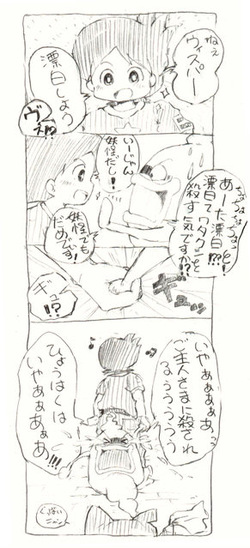 ねぇ
ウィスパー
漂白しよう
ウィス!?
あーた漂白!?!
漂白てワタクシを
殺す気ですか!?
いーじゃん
妖怪だし!
妖怪でも
だめです!
ギュッ
!?
いやぁぁぁぁっ
ご主人さまに殺され
るぅぅぅぅぅ
ひょうはくは
いやぁぁぁ
ぁぁ!!!